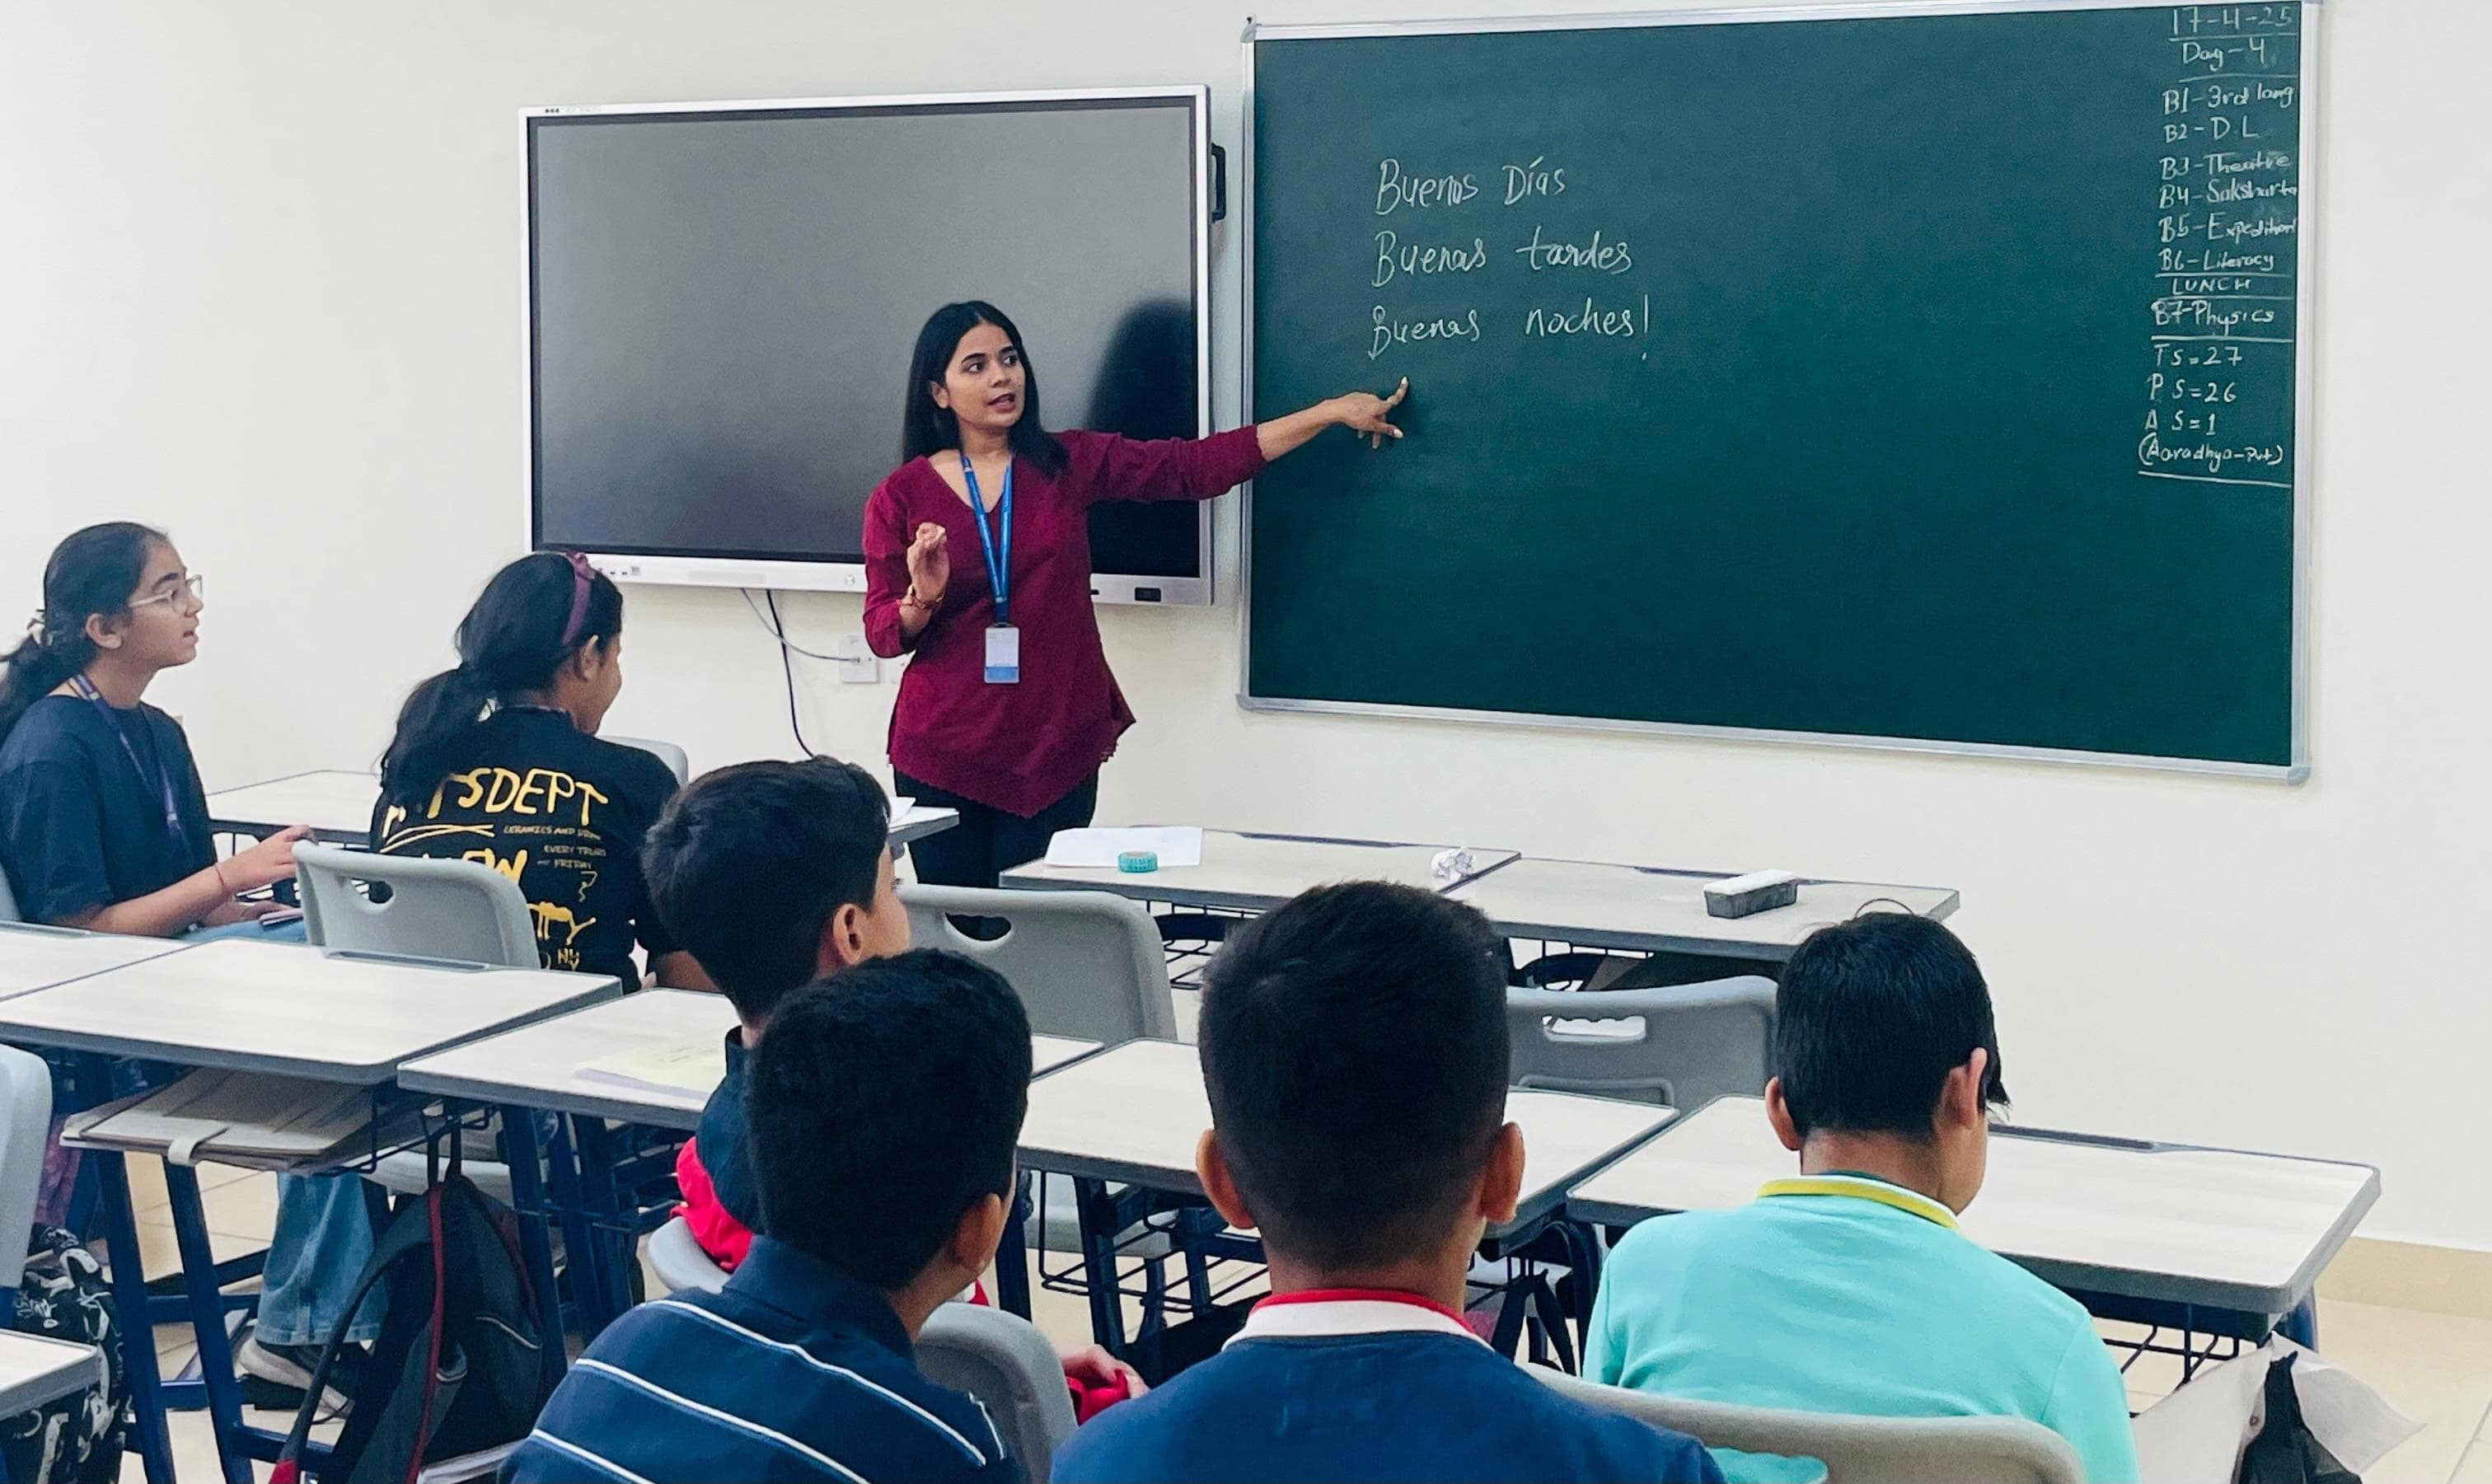 Buenos Días
Buenas tardes
Buenas noches!
17-4-25
Day-4
B1-3rd lang
B2-D.L
B3-Theatre
B4-Saksharta
B5-Expedition
B6-Literacy
LUNCH
B7-Physics
TS=27
PS=26
AS=1
(Aaradhya-Pvt)
SDEPT
CERAMICS AND
EVERY THURS
FRIDAY
NY